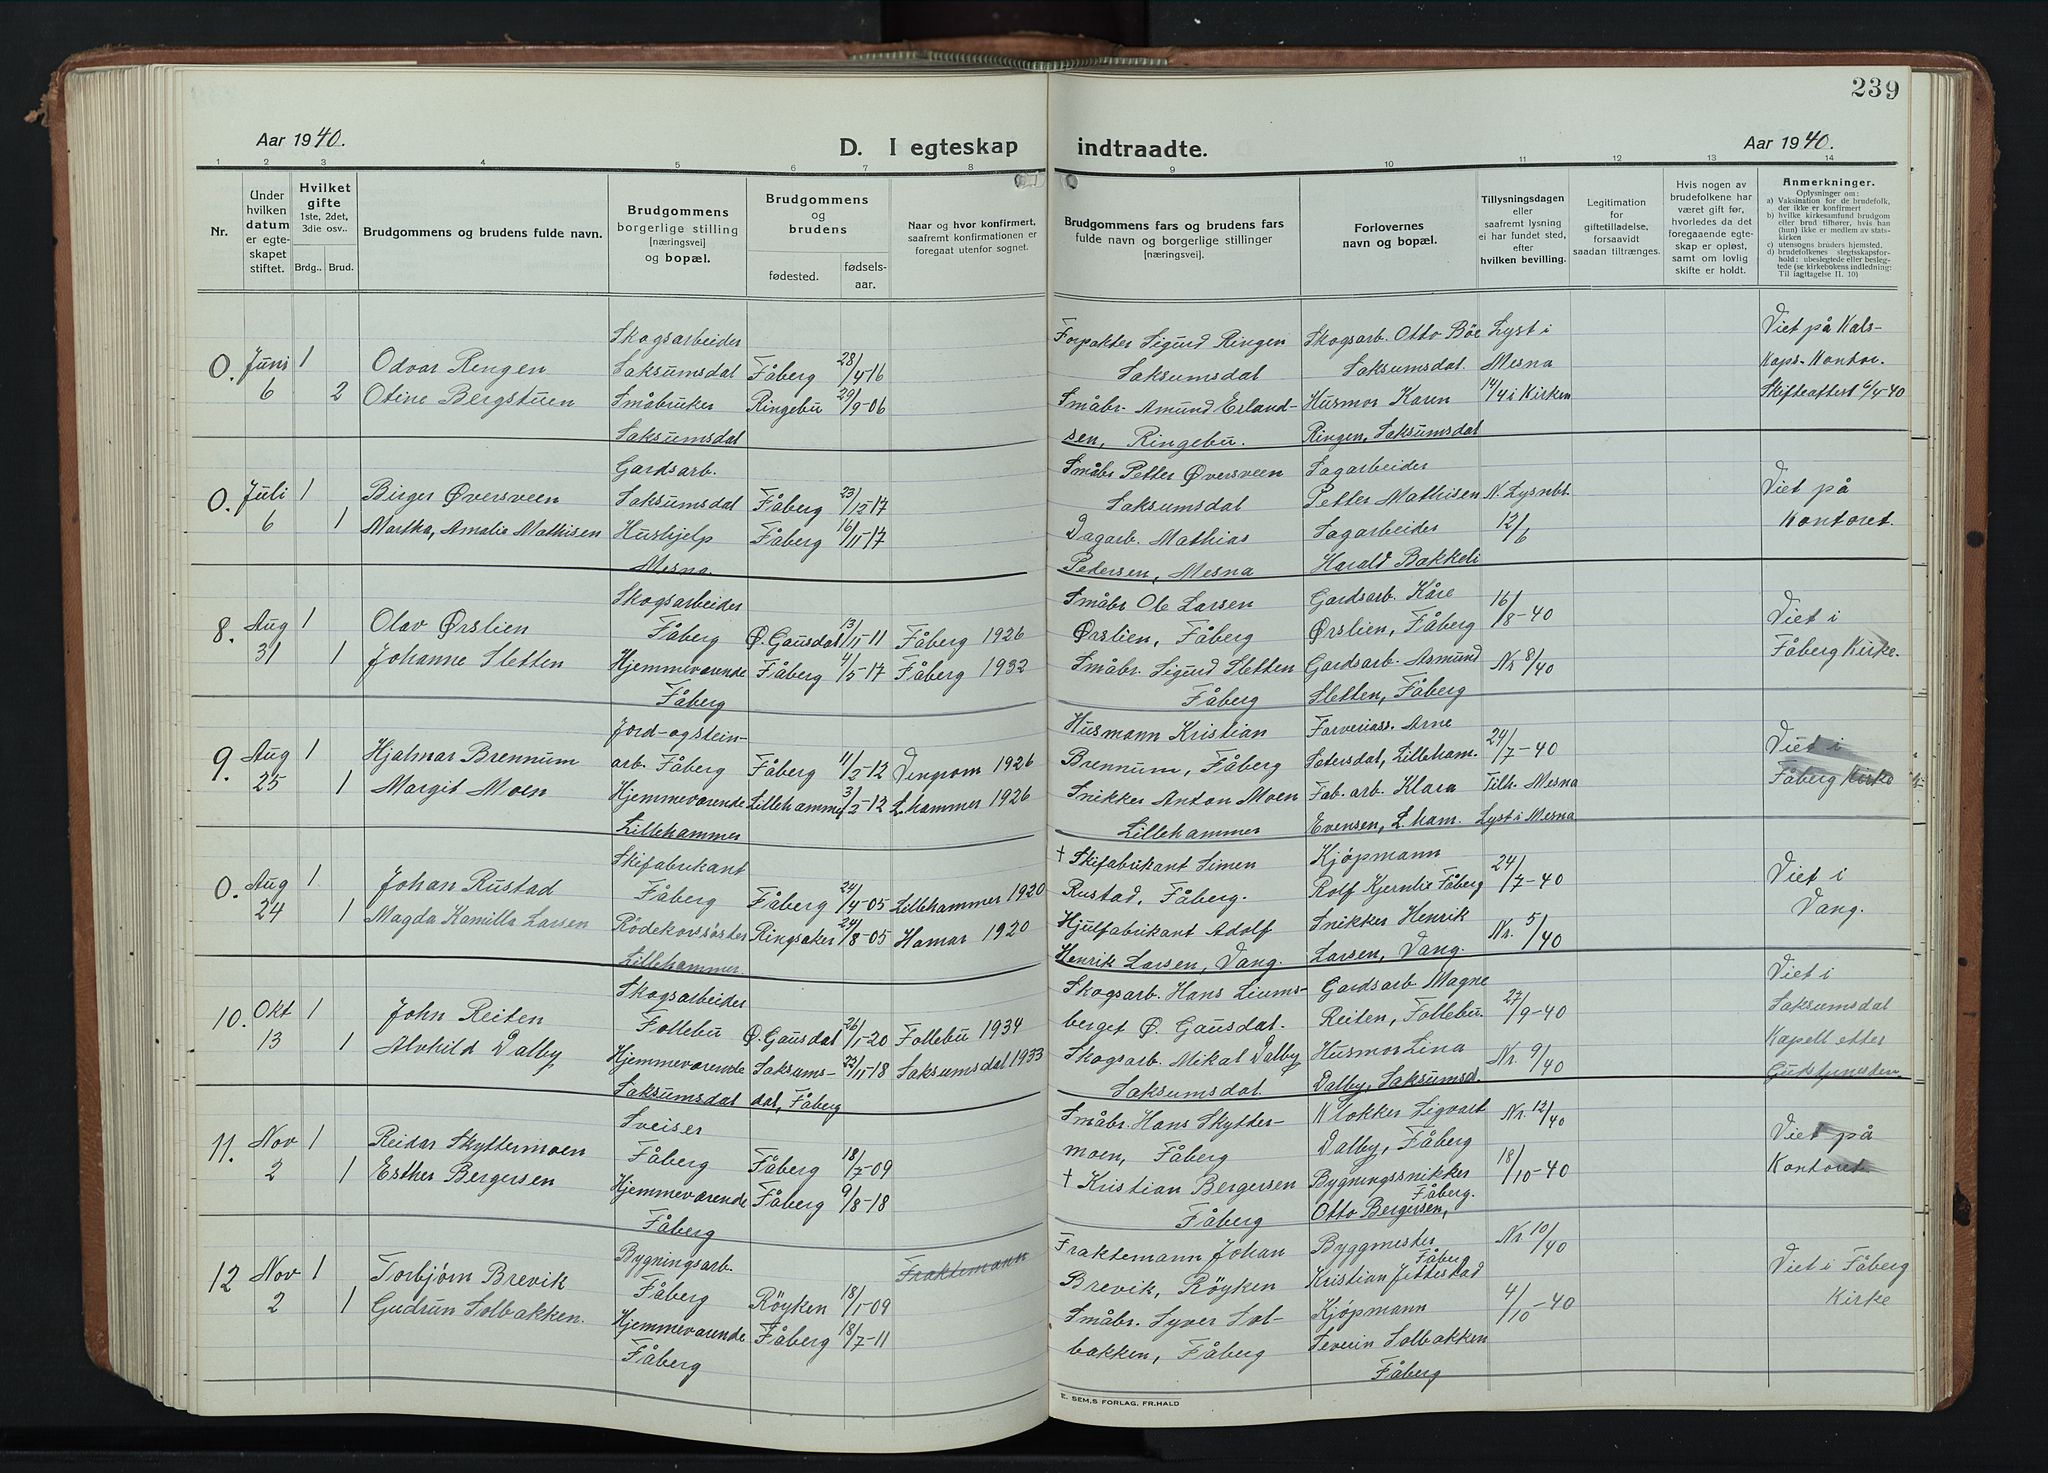 239
Aar 1940. D. I egteskap indtraadte. Aar 1940.
1 2 3 4 5 6 7 8 9 10 11 12 13 14
Nr.
Under hvilken datum er egte-skapet stiftet.
Hvilket gifte 1ste, 2det, 3die osv..
Brdg.. Brud.
Brudgommens og brudens fulde navn.
Brudgommens borgerlige stilling [næringsvei] og bopæl.
Brudgommens og brudens
fødested. fødsels-aar.
Naar og hvor konfirmert, saafremt konfirmationen er foregaat utenfor sognet.
Brudgommens fars og brudens fars fulde navn og borgerlige stillinger [næringsvei].
Forlovernes navn og bopæl.
Tillysningsdagen eller saafremt lysning ei har fundet sted, efter hvilken bevilling.
Legitimation for giftetilladelse, forsaavidt saadan tiltrænges.
Hvis nogen av brudefolkene har været gift før, hvorledes da det foregaaende egte-skap er opløst, samt om lovlig skifte er holdt.
Anmerkninger.
Oplysninger om:
a) Vaksination for de brudefolk, der ikke er konfirmert
b) hvilke kirkesamfund brudgom eller brud tilhører, hvis han (hun) ikke er medlem av stats-kirken
c) utensogns bruders hjemsted.
d) brudefolkenes slegtsskapsfor-hold: ubeslegtede eller besleg-tede (se kirkebokens indledning: Til iagttagelse II. 10)
Skogsarbeider Forpakter Sigurd Ringen Skogsarb. Otto Böe Lyst i Viet på Kals-
0. Juni 1 Odvar Ringen Saksumsdal Fåberg 28/4-16 Saksumsdal Saksumsdal. Mesna Kaps. Kontor.
6 2 Otine Bergstuen Småbruker Ringebu 29/9-06 Småbr. Amund Erland- Husmor Karen 14/4 i Kirken Skifteattest 6/4-40
Saksumsdal sen, Ringebu. Ringen, Saksumsdal
Gardsarb. Småbr Petter Øversveen Sagarbeider
0. Juli 1 Birger Øversveen Saksumsdal Fåberg 23/12-17 Saksumsdal Petter Mathisen N. Lysnbt. Viet på
6 1 Martha, Amalie Mathisen Hushjelp Fåberg 16/11-17 Dagarb. Mathias Sagarbeider 12/6 Kontoret.
Mesna. Pedersen, Mesna Harald Bakkeli
Skogsarbeider Småbr Ole Larsen Gardsarb. Kåre 16/8-40
8. Aug 1 Olav Ørslien Fåberg Ø. Gausdal 13/11-11 Fåberg 1926 Ørslien, Fåberg Ørslien, Fåberg Viet i
31 1 Johanne Sletten Hjemmeværende Fåberg 4/5-17 Fåberg 1932 Småbr. Sigurd Sletten Gardsarb. Asmund Nr 8/40 Fåberg Kirke.
Fåberg Fåberg Sletten, Fåberg
Jord-og stein- Husmann Kristian Farveriass. Arne
9. Aug 1 Hjalmar Brennum arb. Fåberg Fåberg 11/5-12 Vingrom 1926 Brennum, Fåberg Sætersdal, Lilleham. 24/7-40 Viet i
25 1 Margit Moen Hjemmeværende Lillehammer 31/2-12 L.hammer 1926 Snikker Anton Moen Fab. arb. Klara Tilh. Mesna Fåberg Kirke
Lillehammer Lillehammer Evensen, L.ham. Lyst i Mesna
Skifabrikant + Skifabrikant Simen Kjøpmann
0. Aug 1 Johan Rustad Fåberg Fåberg 24/4-05 Lillehammer 1920 Rustad, Fåberg. Rolf Kjernlie Fåberg 24/7-40 Viet i
24 1 Magda Kamilla Larsen Rödekorssöster Ringsaker 24/8-05 Hamar 1920 Hjulfabrikant Adolf Snikker Henrik Nr. 5/40 Vang.
Lillehammer. Henrik Larsen, Vang. Larsen, Vang.
Skogsarbeider Skogsarb. Hans Liums- Gardsarb. Magne Viet i
10. Okt 1 John Reiten Follebu Ø. Gausdal 26/1-20 Follebu 1934 berget Ø. Gausdal. Reiten, Follebu. 27/9-40 Saksumsdal
13 1 Alvhild Dalby Hjemmeværende Saksums- 22/11-18 Saksumsdal 1933 Skogsarb. Mikal Dalby Husmor Lina Nr. 9/40 Kapell etter
Saksumsdal dal, Fåberg Saksumsdal. Dalby, Saksumsd. Gudstjenesten.
Sveiser Småbr. Hans Skytter- Klokker Sigvart Nr. 12/40
11. Nov 1 Reidar Skyttermoen Fåberg Fåberg 18/7-09 moen, Fåberg Dalby, Fåberg Viet på
2 1 Esther Bergersen Hjemmeværende Fåberg 9/8-18 + Kristian Bergersen Bygningssnikker 18/10-40 Kontoret
Fåberg Fåberg Otto Bergersen, Fåberg.
Bygningsarb. Fraktemann Fraktemann Johan Byggmester Nr 10/40
12 Nov 1 Torbjørn Brevik Fåberg Röyken 18/1-09 Brevik, Röyken Kristian Jettestad Fåberg Viet i Fåberg
2 1 Gudrun Solbakken. Hjemmeværende Fåberg 18/7-11 Småbr. Syver Sol- Kjøpmann 4/10-40 Kirke
Fåberg bakken, Fåberg Severin Solbakken
Fåberg
E. SEM,S FORLAG, FR.HALD